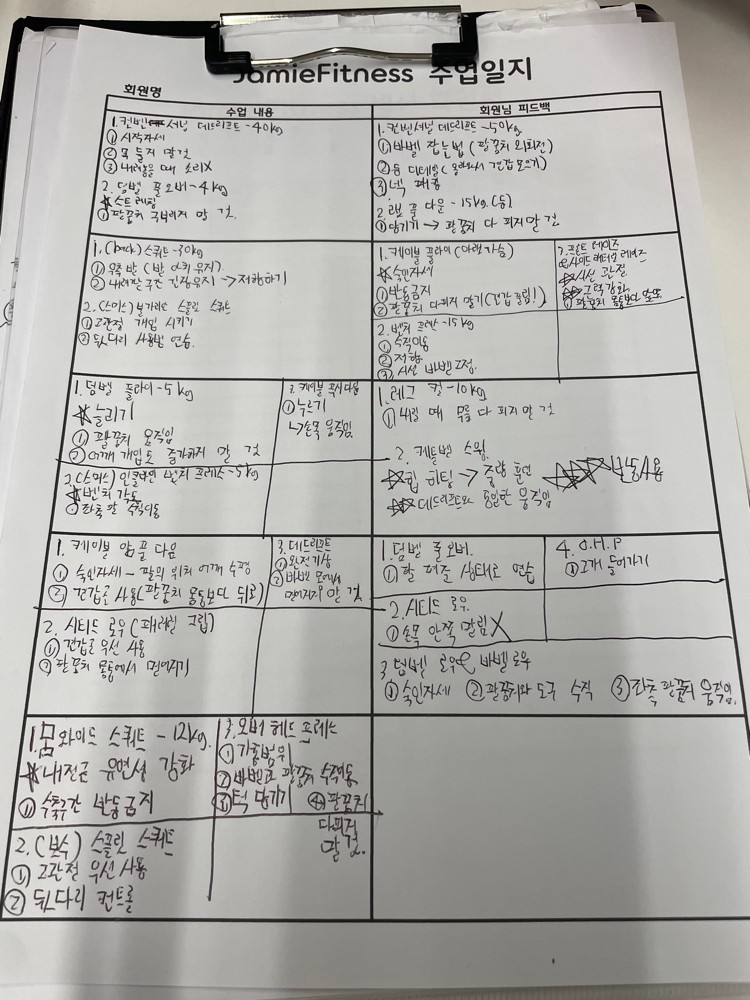 JamieFitness 수업일지
회원명
수업 내용
회원님 피드백
1. 컨벤셔널 데드리프트 - 40kg
① 시작자세
② 몸 들지 말 것
③ 내려놓을 때 소리X
2. 덤벨 풀 오버 - 4kg
★ 스트레칭
① 팔꿈치 구부리지 말 것.
1. 컨벤셔널 데드리프트 - 50kg
① 바벨 잡는법 (팔꿈치 외회전)
② 등 디테일
③ 넥 패킹
2. 랫 풀 다운 - 15kg (등)
① 당기기 → 팔꿈치 다 피지말 것
1. (back) 스쿼트 - 30kg
② 내려갈 구간 긴장유지 → 저항하기
2. (스미스) 불가리안 스플릿 스쿼트
① 고관절 개입 시키기
② 뒷다리 사용법 연습.
1. 케이블 플라이 (아랫가슴)
★ 숙인자세
① 반동금지
② 팔꿈치 다 펴지 말기
2. 벤치 프레스 - 15kg
① 수직이동
② 저항
③ 시선 바벨 고정.
3. 프론트 레이즈
사이드 레터럴 레이즈
★ 시선 관절
★ 근력강화
1. 덤벨 플라이 - 5kg
★ 늘리기
① 팔꿈치 움직임
② 어깨 개입도 증가하지 말 것
2. (스미스) 인클라인 벤치 프레스 - 5kg
★ 벤치 각도
① 좌측 팔 수직이동
3. 케이블 푸시다운
① 누르기
↳ 손목 움직임.
1. 레그 컬 - 10kg
① 내릴 때 무릎 다 피지 말 것
2. 케틀벨 스윙.
★ 힙 히팅 → 중량 훈련
반동사용
★ 데드리프트와 동일한 움직임
1. 케이블 암 풀 다운
① 숙인자세 - 팔의 위치 어깨 수평
② 견갑골 사용 (팔꿈치 몸통보다 뒤로)
2. 시티드 로우 (패러럴 그립)
① 견갑골 우선 사용
② 팔꿈치 몸통에서 멀어지기
3. 데드리프트
① 완전기상
② 바벨 몸에서
멀어지지 말 것
1. 덤벨 풀 오버.
① 팔 펴준 상태로 연습
4. O.H.P
① 고개 들어가기
2. 시티드 로우.
① 손목 안쪽 말림 X
3. 덤벨 로우 & 바벨로우
① 숙인자세 ② 팔꿈치와 도구 수직 ③ 좌측 팔꿈치 움직임.
1. 와이드 스쿼트 - 12kg.
★ 내전근 유연성 강화
① 수축구간 반동금지
2. (보수) 스플릿 스쿼트
① 고관절 우선사용
② 뒷다리 컨트롤
3. 오버 헤드 프레스
① 가동범위
② 바벨과 팔꿈치 수직이동
③ 턱 당기기 ④ 팔꿈치
다피지
말 것.